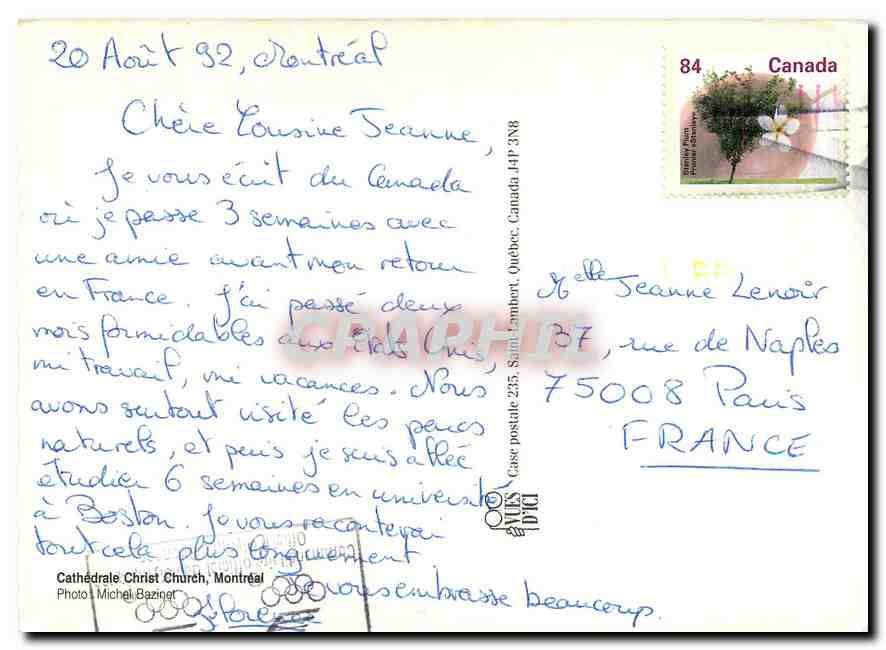 20 Août 92, Montréal
Chère Cousine Jeanne,
Je vous écrit du Canada
où je passe 3 semaines avec
une amie avant mon retour
en France. J'ai passé deux
mois formidables aux Etats Unis,
mi travail, mi vacances. Nous
avons surtout visité les parcs
naturels, et puis je suis allée
étudier 6 semaines en université
à Boston. Je vous raconterai
tout cela plus longuement
Je vous embrasse beaucoup.
Florence
Cathédrale Christ Church, Montréal
Photo : Michel Bazinet
VUES
D'ICI
Case postale 235, Saint-Lambert, Québec, Canada J4P 3N8
84 Canada
Stanley Plum
Prunier «Stanley»
Melle Jeanne Lenoir
37, rue de Naples
75008 Paris
FRANCE
CPAPHIL